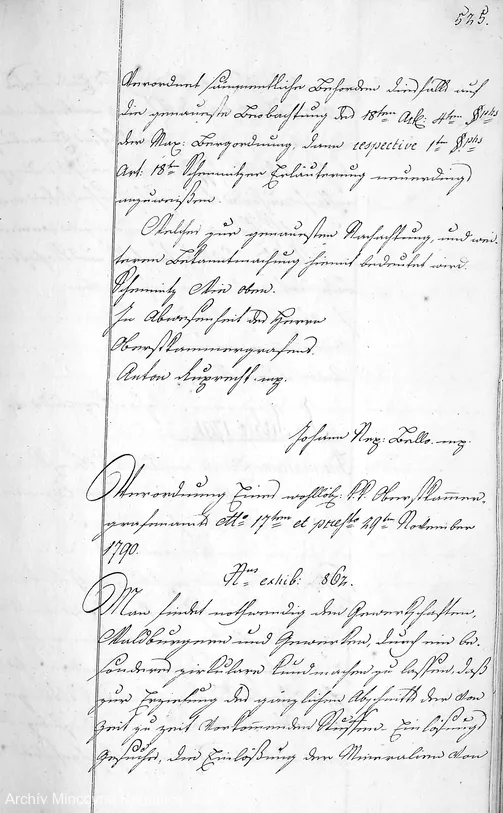 525.
Verordnet sammentliche Behörden diesfalls auf
die genaueste Beobachtung des 18ten Art: 4ten §phs
der Max: Bergordnung, dann respective 1ten §phs
Art: 18ten Schemnitzer Erläuterung neuerdings
anzuweisen.
Welches zur genauesten Nachachtung, und wei-
teren Bekanntmachung hiemit bedeutet wird.
Schemnitz Wie oben.
In Abwesenheit des Herrn
Oberstkammergrafens.
Anton Ruprecht. mp.
Johann Nep: Bello. mp.
Verordnung Eines wohllöb: k.k. Oberstkammer-
grafenamts dto 17tem et praesto 29ten November
1790.
Nrus exhib: 862.
Man findet nothwendig den Gewerkschaften,
Waldburgern und Gewerken, durch ein be-
sonderes zirkulare kundmachen zu lassen, daß
zur Erzielung des gänzlichen Abschnitts der von
Zeit zu Zeit Vorkommenden Stuffen-Einlösungs
Gesuche, die Einlösung der Mineralien von
Archív Mincovne Kremnica